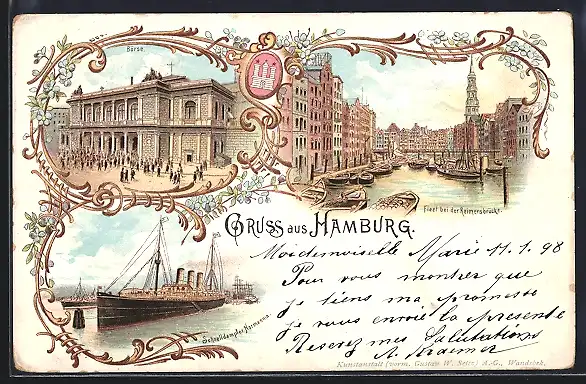 Börse.
Fleet bei der Reimersbrücke.
GRUSS aus HAMBURG.
Schnelldampfer Normannia.
Moidemoiselle Marie 11.1.98
Pour vous montrer que
je tiens ma promesse
je vous envoie la presente
Reserez mes Salutations
A. Kraemer
Kunstanstalt (vorm. Gustav W. Seitz) A.-G., Wandsbek.